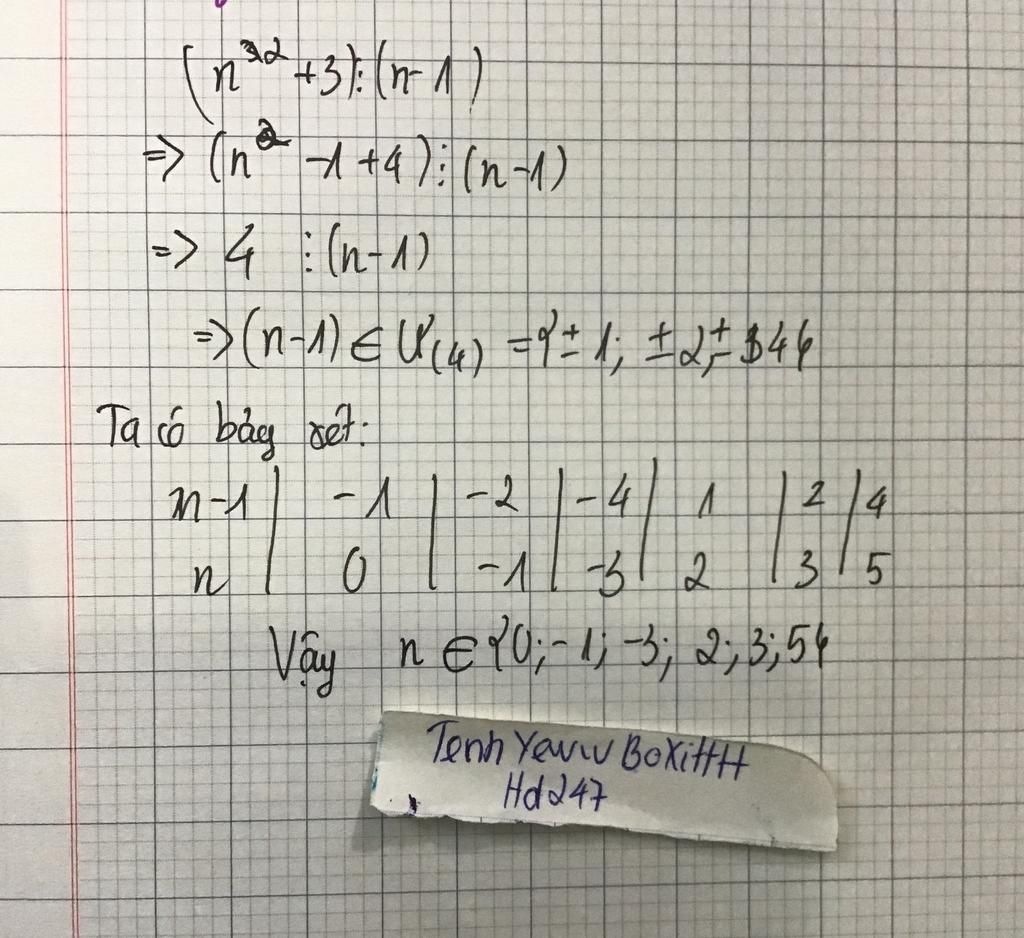 (n² + 3) ⋮ (n - 1)
=> (n² - 1 + 4) ⋮ (n - 1)
=> 4 ⋮ (n - 1)
=> (n - 1) ∈ Ư(4) = {± 1; ± 2; ± 4}
Ta có bảng xét:
n - 1 | - 1 | - 2 | - 4 | 1 | 2 | 4
n | 0 | - 1 | - 3 | 2 | 3 | 5
Vậy n ∈ {0; - 1; - 3; 2; 3; 5}
Tenh Yeuw BoXiHH
Hd247